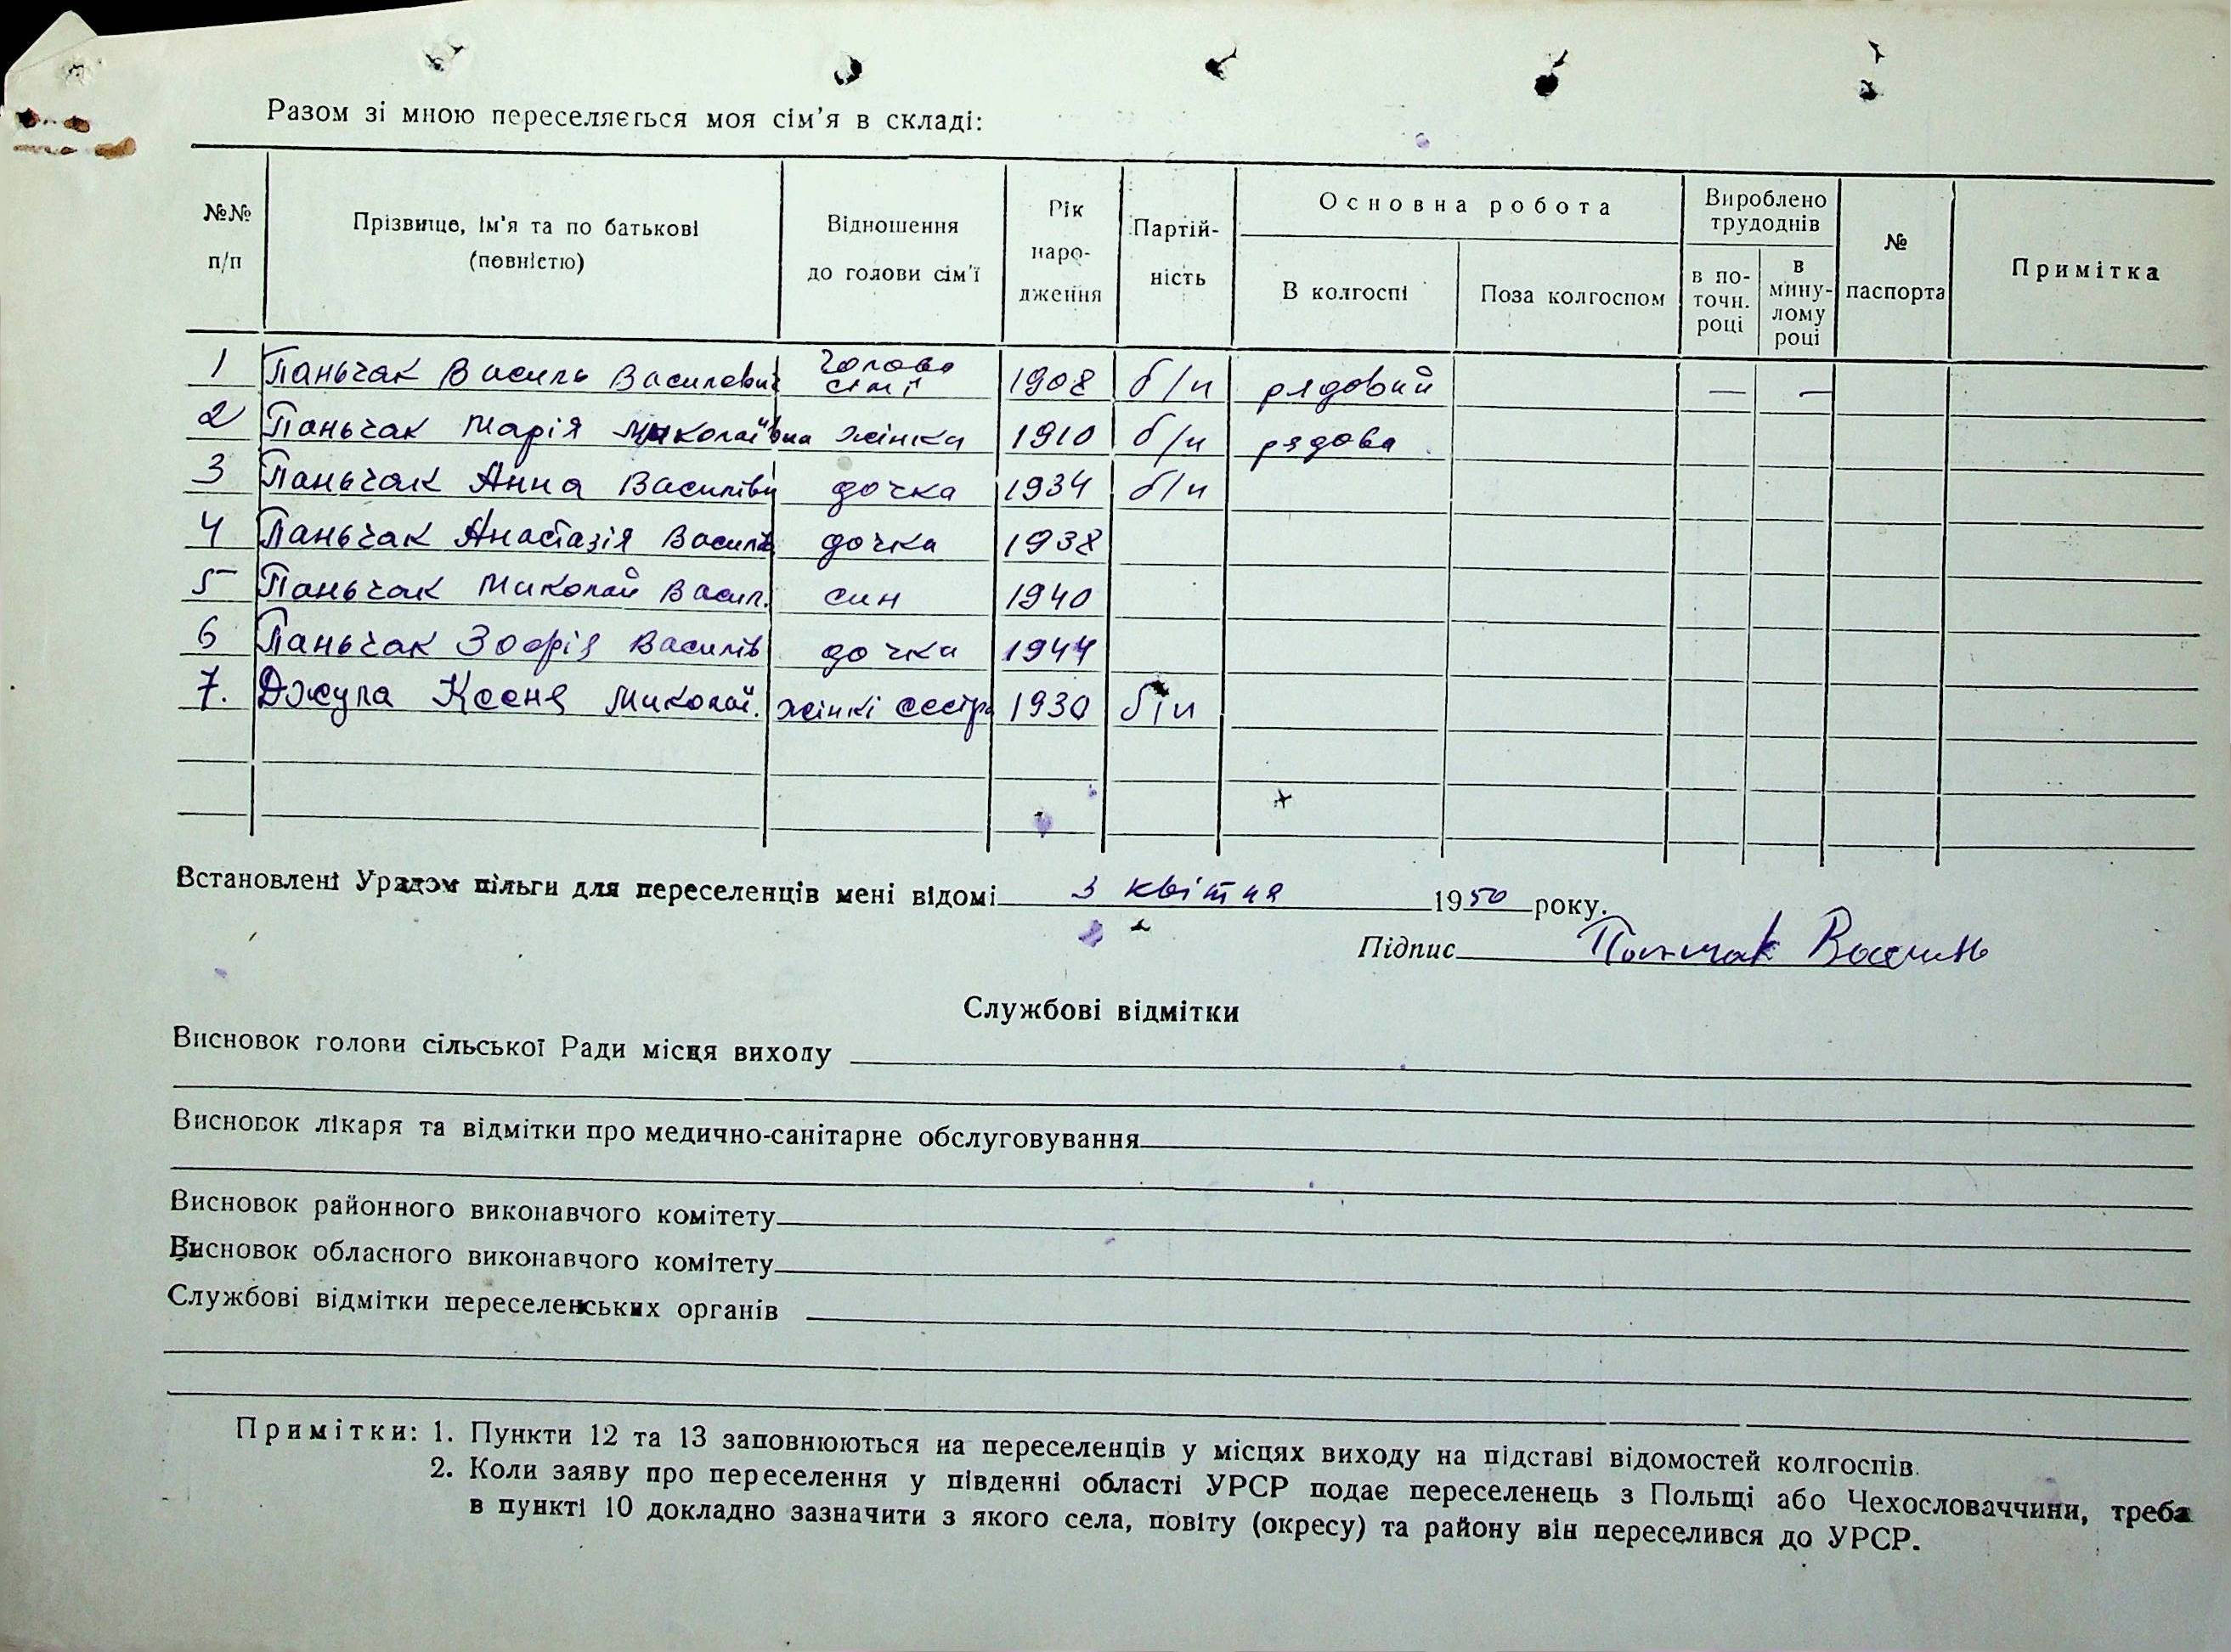 Разом зі мною переселяється моя сім'я в складі:
№№ п/п Прізвище, ім'я та по батькові (повністю) Відношення до голови сім'ї Рік наро-дження Партій-ність Основна робота Вироблено трудоднів № паспорта Примітка
В колгоспі Поза колгоспом в по-точн. році в мину-лому році
1 Паньчак Василь Василевич голова сімї 1908 б/п рядовий — —
2 Паньчак Марія Миколаївна жінка 1910 б/п рядова
3 Паньчак Анна Василівн дочка 1934 б/п
4 Паньчак Анастазія Василів дочка 1938
5 Паньчак Миколай Васил. син 1940
6 Паньчак Зофія Василів дочка 1944
7. Джула Ксеня Миколаї. жінкі сестра 1930 б/п
Встановлені Урядом пільги для переселенців мені відомі 3 квітня 1950 року.
Підпис Паньчак Василь
Службові відмітки
Висновок голови сільської Ради місця виходу
Висновок лікаря та відмітки про медично-санітарне обслуговування
Висновок районного виконавчого комітету
Висновок обласного виконавчого комітету
Службові відмітки переселенських органів
Примітки: 1. Пункти 12 та 13 заповнюються на переселенців у місцях виходу на підставі відомостей колгоспів.
2. Коли заяву про переселення у південні області УРСР подає переселенець з Польщі або Чехословаччини, треба
в пункті 10 докладно зазначити з якого села, повіту (окресу) та району він переселився до УРСР.